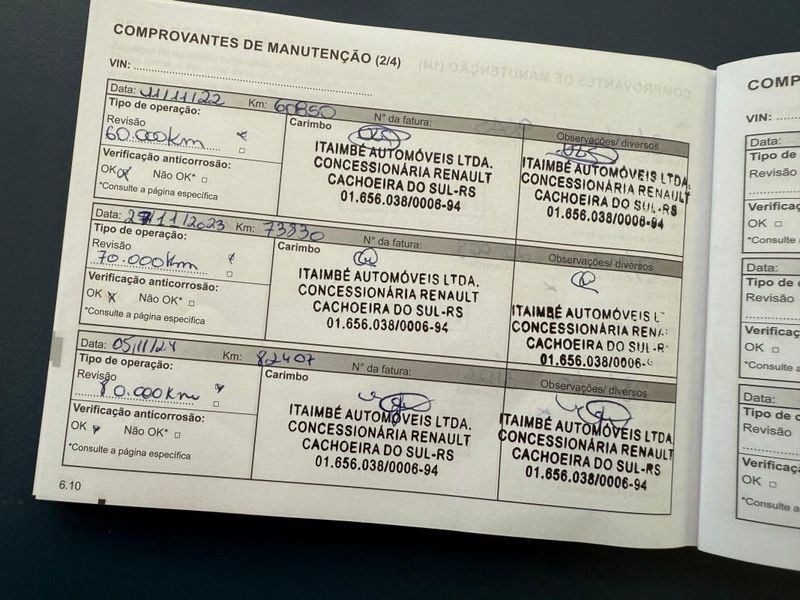 COMPROVANTES DE MANUTENÇÃO (2/4)
VIN:
Data: 11/11/22 Km: 60850 N° da fatura:
Tipo de operação:
Revisão
60.000km
Verificação anticorrosão:
OK Não OK*
*Consulte a página específica
Carimbo
ITAIMBÉ AUTOMÓVEIS LTDA.
CONCESSIONÁRIA RENAULT
CACHOEIRA DO SUL-RS
01.656.038/0006-94
Observações/ diversos
ITAIMBÉ AUTOMÓVEIS LTDA.
CONCESSIONÁRIA RENAULT
CACHOEIRA DO SUL-RS
01.656.038/0006-94
Data: 27/11/2023 Km: 73830 N° da fatura:
Tipo de operação:
Revisão
70.000km
Verificação anticorrosão:
OK Não OK*
*Consulte a página específica
Carimbo
ITAIMBÉ AUTOMÓVEIS LTDA.
CONCESSIONÁRIA RENAULT
CACHOEIRA DO SUL-RS
01.656.038/0006-94
Observações/ diversos
ITAIMBÉ AUTOMÓVEIS
CONCESSIONÁRIA
CACHOEIRA DO SUL-RS
01.656.038/0006-
Data: 05/11/24 Km: 82407 N° da fatura:
Tipo de operação:
Revisão
80.000km
Verificação anticorrosão:
OK Não OK*
*Consulte a página específica
Carimbo
ITAIMBÉ AUTOMÓVEIS LTDA.
CONCESSIONÁRIA RENAULT
CACHOEIRA DO SUL-RS
01.656.038/0006-94
Observações/ diversos
ITAIMBÉ AUTOMÓVEIS LTDA.
CONCESSIONÁRIA RENAULT
CACHOEIRA DO SUL-RS
01.656.038/0006-94
6.10
COMP
VIN:
Data:
Tipo de
Revisão
Verificaç
OK
*Consulte
Data:
Tipo de
Revisão
Verificaç
OK
*Consulte
Data:
Tipo de o
Revisão
Verificaç
OK
*Consulte a